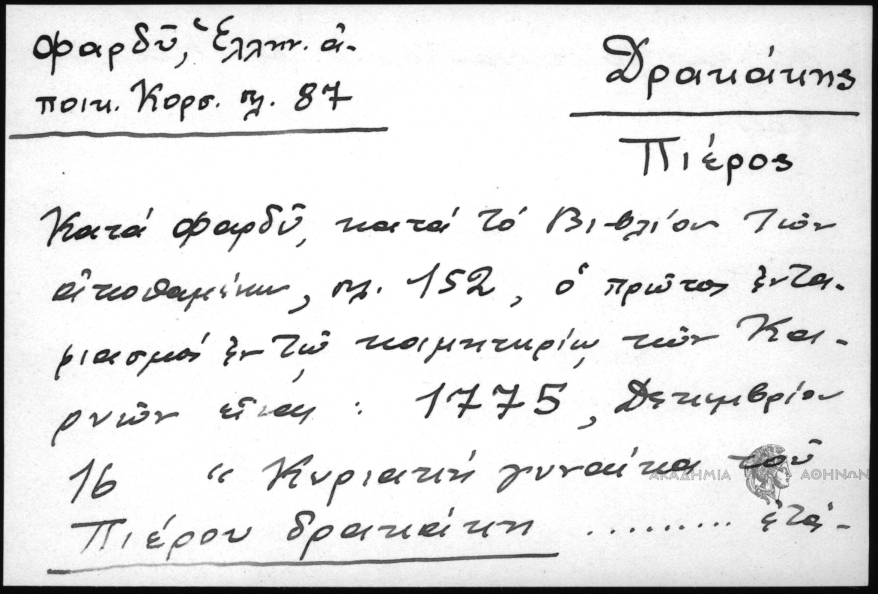 Φαρδῦ, Ἑλλην. ἀ-
ποικ. Κορσ. σλ. 87
Δρακάκης
Πιέρος
Κατά Φαρδῦ, κατά τό Βιβλίον Τῶν
ἀποθαμένων, σλ. 152, ὁ πρῶτος ἐντα-
φιασμός ἐν τῷ κοιμητηρίῳ τῶν Και-
ρνιῶν εἶναι : 1775, Δεκεμβρίου
16 “ Κυριακή γυναίκα τοῦ
Πιέρου δρακάκη ......... ἐτά-
ΑΚΑΔΗΜΙΑ ΑΘΗΝΩΝ